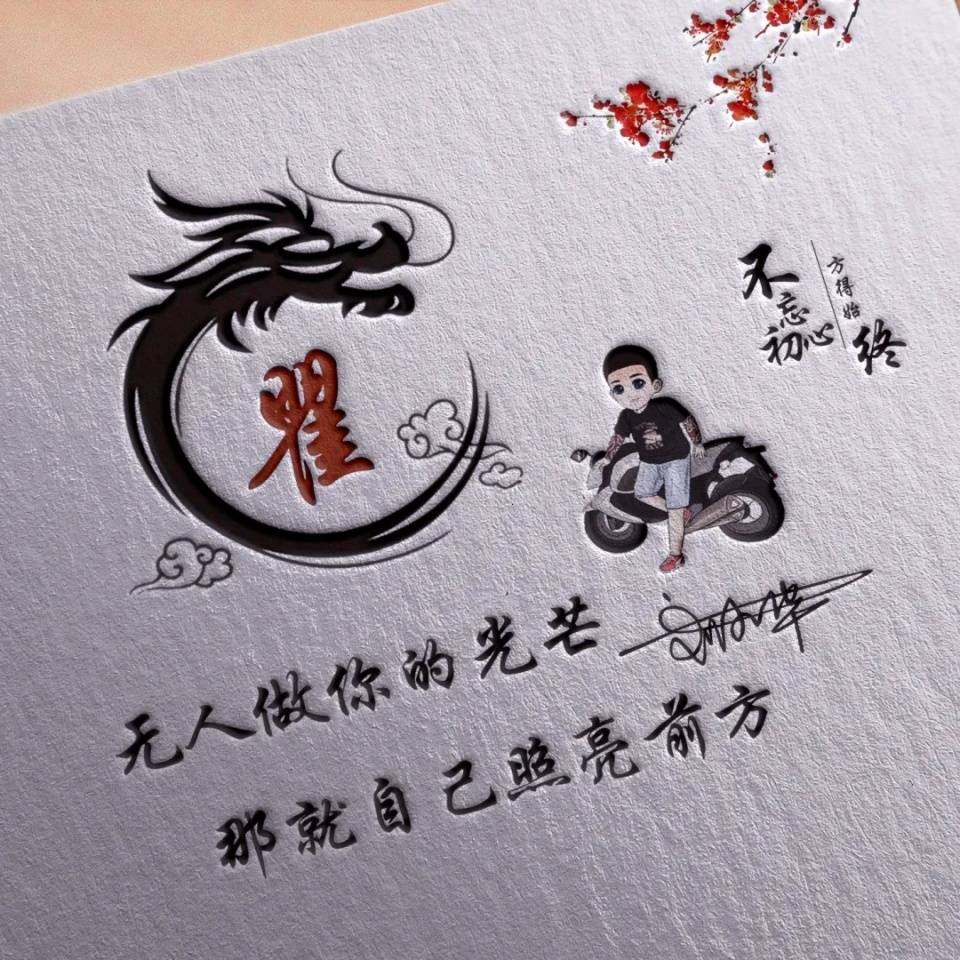 瞿
不忘初心
方得始终
无人做你的光芒
那就自己照亮前方